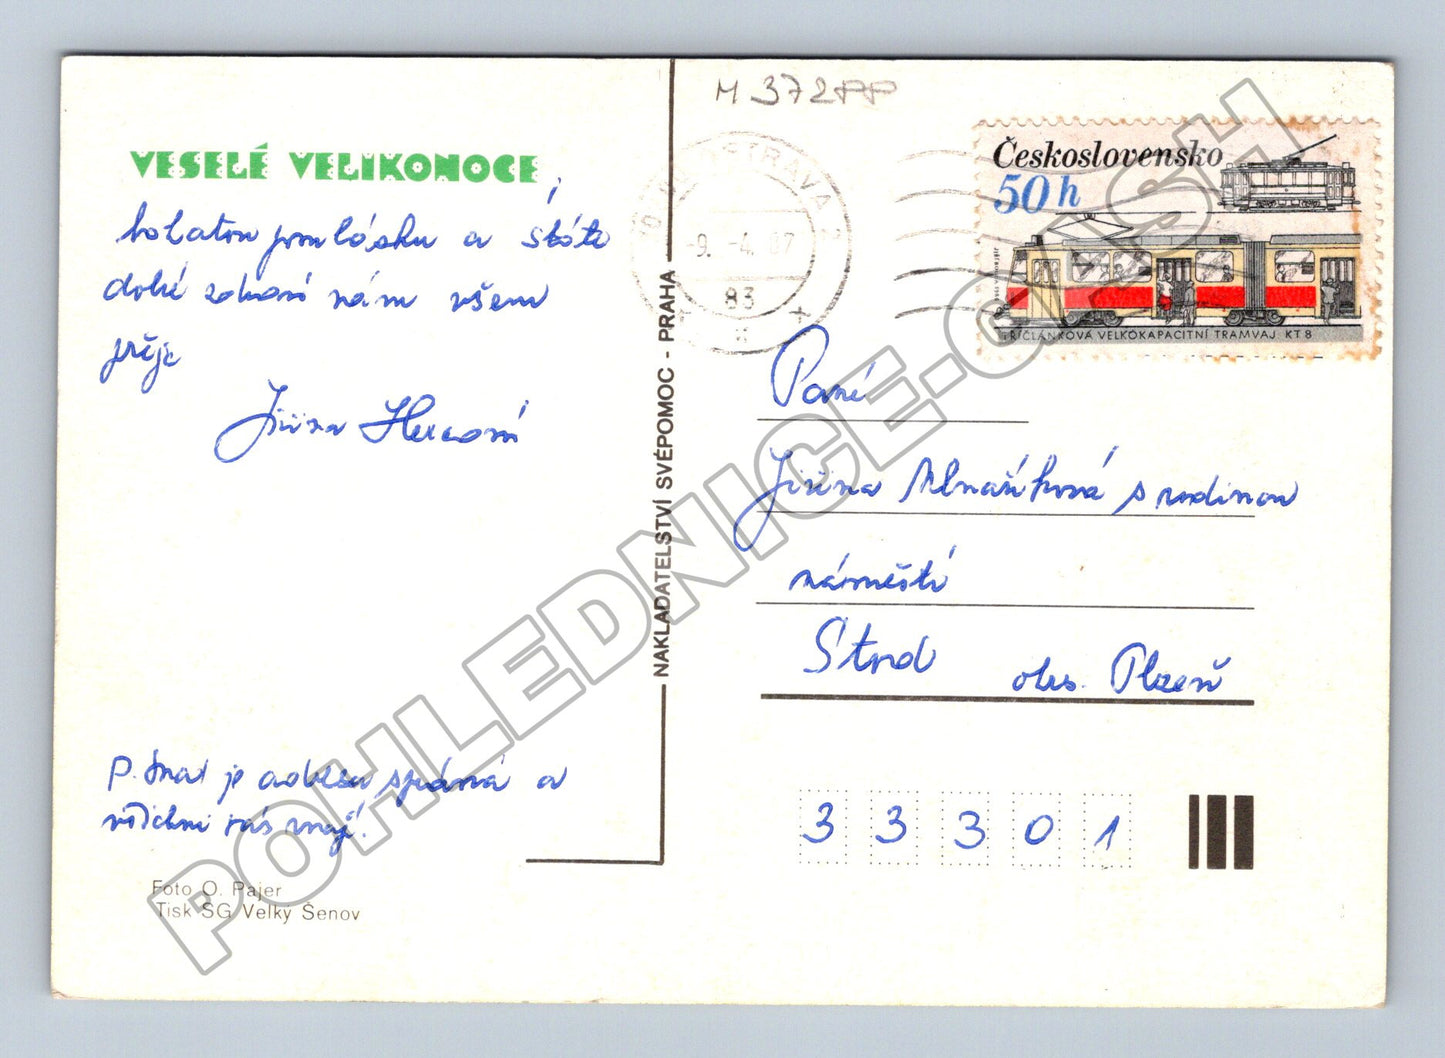 M 372PP
VESELÉ VELIKONOCE
bohatou pomlásku a stále
dobré zdraví vám všem
přeje
Jiřina
P. Snad je adresa správná a
všichni vás znají!
Foto O. Pajer
Tisk SG Velký Šenov
NAKLADATELSTVÍ SVÉPOMOC - PRAHA
OSTRAVA 2
-9.-4.87
83
Československo
50 h
TŘÍČLÁNKOVÁ VELKOKAPACITNÍ TRAMVAJ KT 8
Paní
Jiřina Mlnaříková s rodinou
náměstí
Strod okres. Plzeň
33301
POHLEDNICE-CASH